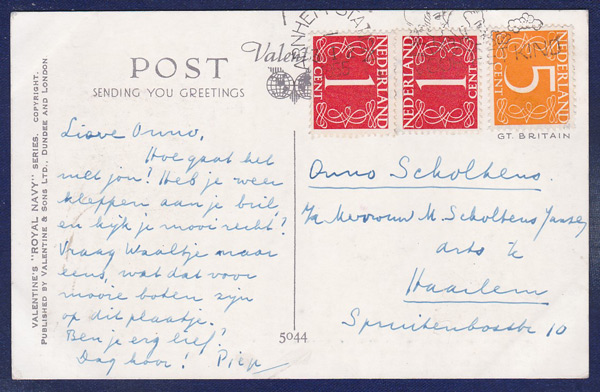 POST
Valentine's
SENDING YOU GREETINGS
ARNHEM STAT
NEDERLAND
1
CENT
NEDERLAND
1
CENT
NEDERLAND
5
CENT
GT. BRITAIN
VALENTINE'S "ROYAL NAVY" SERIES. COPYRIGHT.
PUBLISHED BY VALENTINE & SONS LTD., DUNDEE AND LONDON
Lieve Onno,
Hoe gaat het
met jou? Heb je weer
kleppen aan je bril,
en kijk je mooi recht?
Vraag Waaltje maar
eens, wat dat voor
mooie boten zijn
op dit plaatje.
Ben je erg lief?
Dag hoor! Piep
5044
Onno Scholtens.
p/a Mevrouw M. Scholtens Jansen
arts te
Haarlem
Spruitenbosstr 10